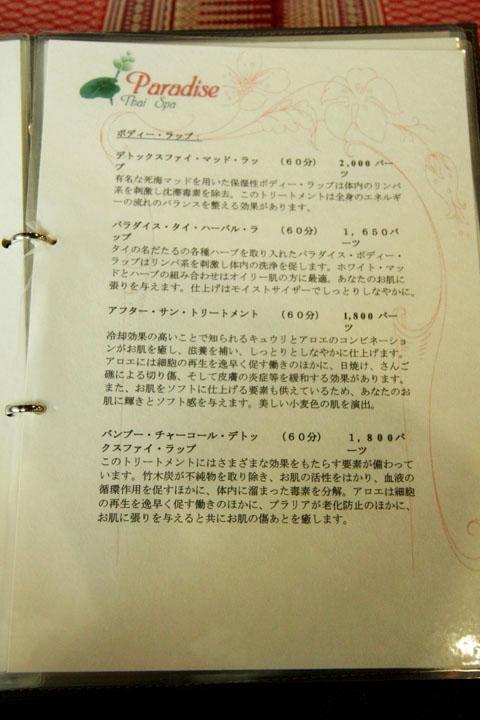 Paradise
Thai Spa
ボディー・ラップ:
デトックスファイ・マッド・ラッ (60分) 2,000 バー
プ ツ
有名な死海マッドを用いた保湿性ボディー・ラップは体内のリンパ
系を刺激し沈滞毒素を除去。このトリートメントは全身のエネルギ
ーの流れのバランスを整える効果があります。
パラダイス・タイ・ハーバル・ラ (60分) 1,650バ
ップ ーツ
タイの名だたるの各種ハーブを取り入れたパラダイス・ボディー・
ラップはリンパ系を刺激し体内の洗浄を促します。ホワイト・マッ
ドとハーブの組み合わせはオイリー肌の方に最適。あなたのお肌に
張りを与えます。仕上げはモイストサイザーでしっとりしなやかに。
アフター・サン・トリートメント (60分) 1,800 バー
ツ
冷却効果の高いことで知られるキュウリとアロエのコンビネーショ
ンがお肌を癒し、滋養を補い、しっとりとしなやかに仕上げます。
アロエには細胞の再生を逸早く促す働きのほかに、日焼け、さんご
礁による切り傷、そして皮膚の炎症等を緩和する効果があります。
また、お肌をソフトに仕上げる要素も供えているため、あなたのお
肌に輝きとソフト感を与えます。美しい小麦色の肌を演出。
バンブー・チャーコール・デトッ (60分) 1,800バ
クスファイ・ラップ ーツ
このトリートメントにはさまざまな効果をもたらす要素が備わって
います。竹木炭が不純物を取り除き、お肌の活性をはかり、血液の
循環作用を促すほかに、体内に溜まった毒素を分解。アロエは細胞
の再生を逸早く促す働きのほかに、プラリアが老化防止のほかに、
お肌に張りを与えると共にお肌の傷あとを癒します。